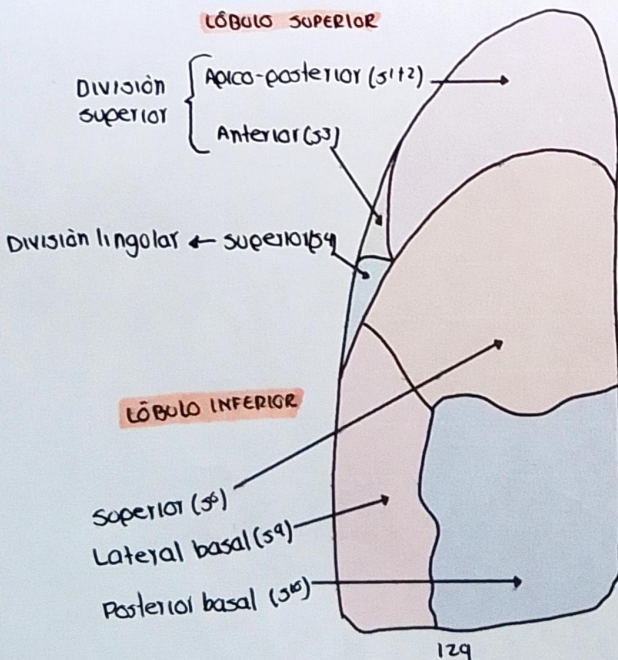 LÓBULO SUPERIOR
División
superior
Apico-posterior (s1+2)
Anterior (s3)
División lingolar ← superior (s4)
LÓBULO INFERIOR
Superior (s6)
Lateral basal (s9)
Posterior basal (s10)
Izq